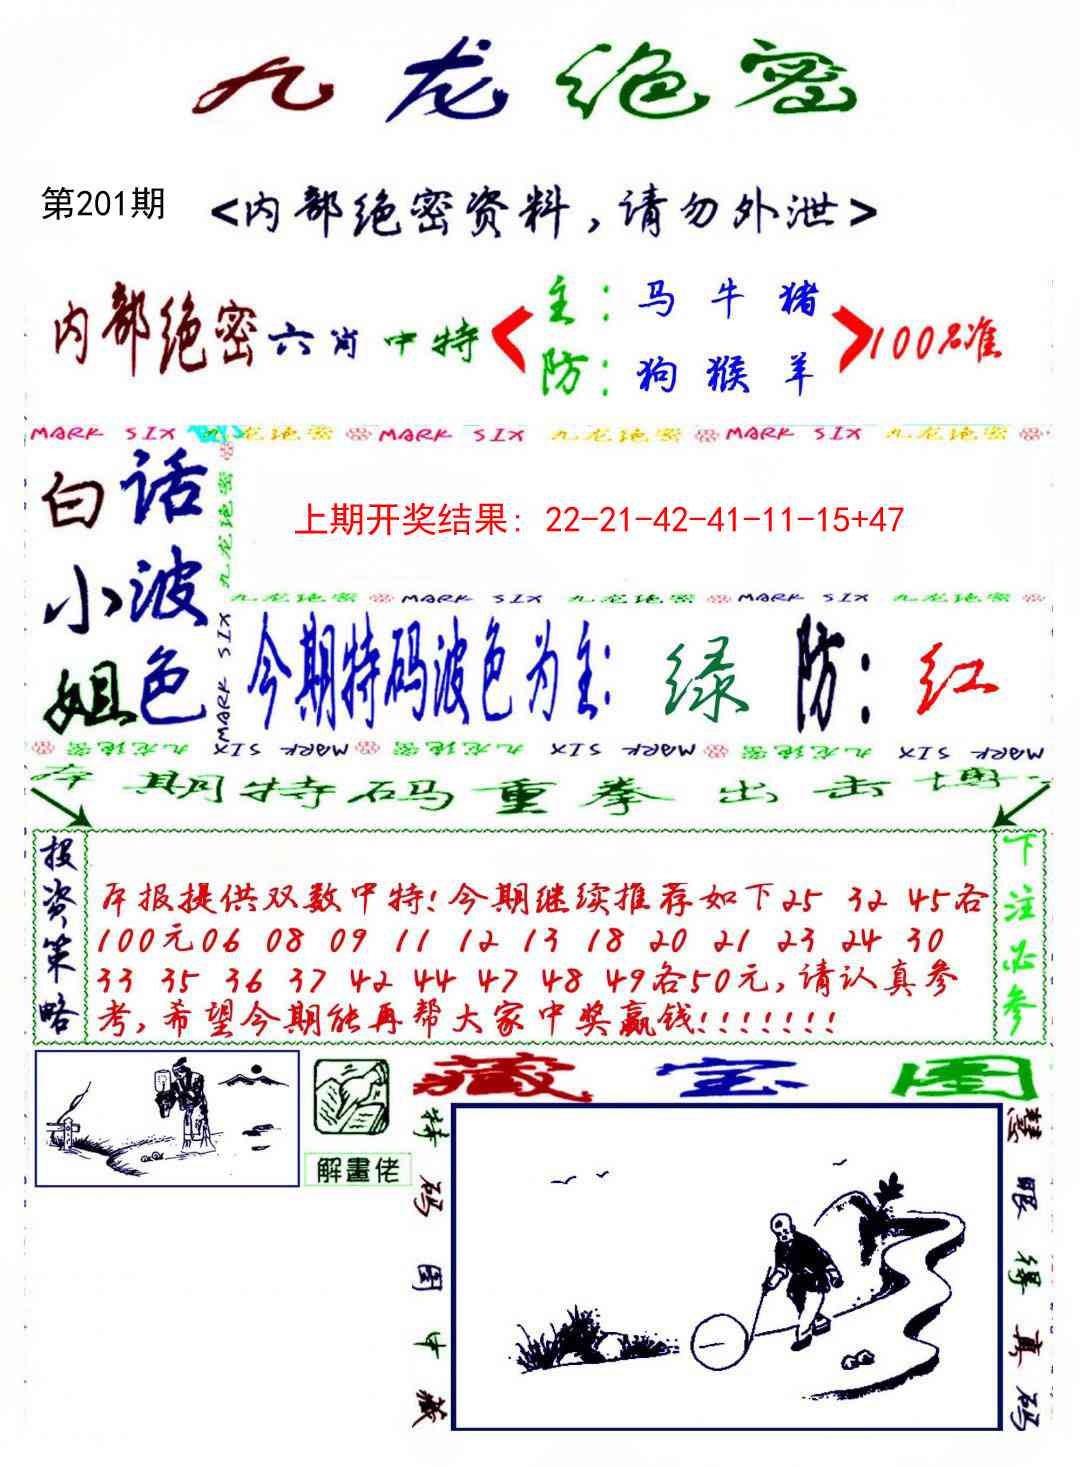 九龙绝密
第201期
<内部绝密资料,请勿外泄>
内部绝密六肖中特
主:马 牛 猪
防:狗 猴 羊
100%准
MARK SIX 九龙绝密 MARK SIX 九龙绝密 MARK SIX 九龙绝密
白话
小波
姐色
九龙绝密
MARK SIX
上期开奖结果: 22-21-42-41-11-15+47
九龙绝密 MARK SIX 九龙绝密 MARK SIX 九龙绝密
今期特码波色为主: 绿 防: 红
九龙绝密 MARK SIX 九龙绝密 MARK SIX 九龙绝密 MARK SIX
MARK SIX
本期特码重拳出击博
投资策略
本报提供双数中特!今期继续推荐如下25 32 45各
100元06 08 09 11 12 13 18 20 21 23 24 30
33 35 36 37 42 44 47 48 49各50元,请认真参
考,希望今期能再帮大家中奖赢钱!!!!!!!
下注必参
解畫佬
藏宝图
特码图中藏
慧眼得真码